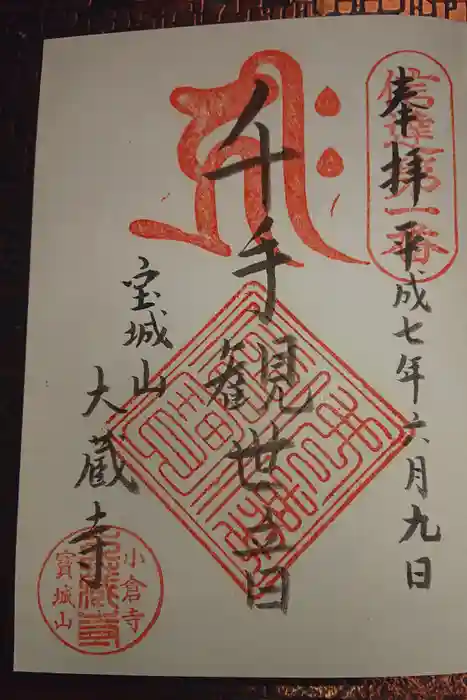 奉拝 平成七年六月九日
信達第一番
千手観世音
宝城山
大蔵寺
小倉寺
寶城山